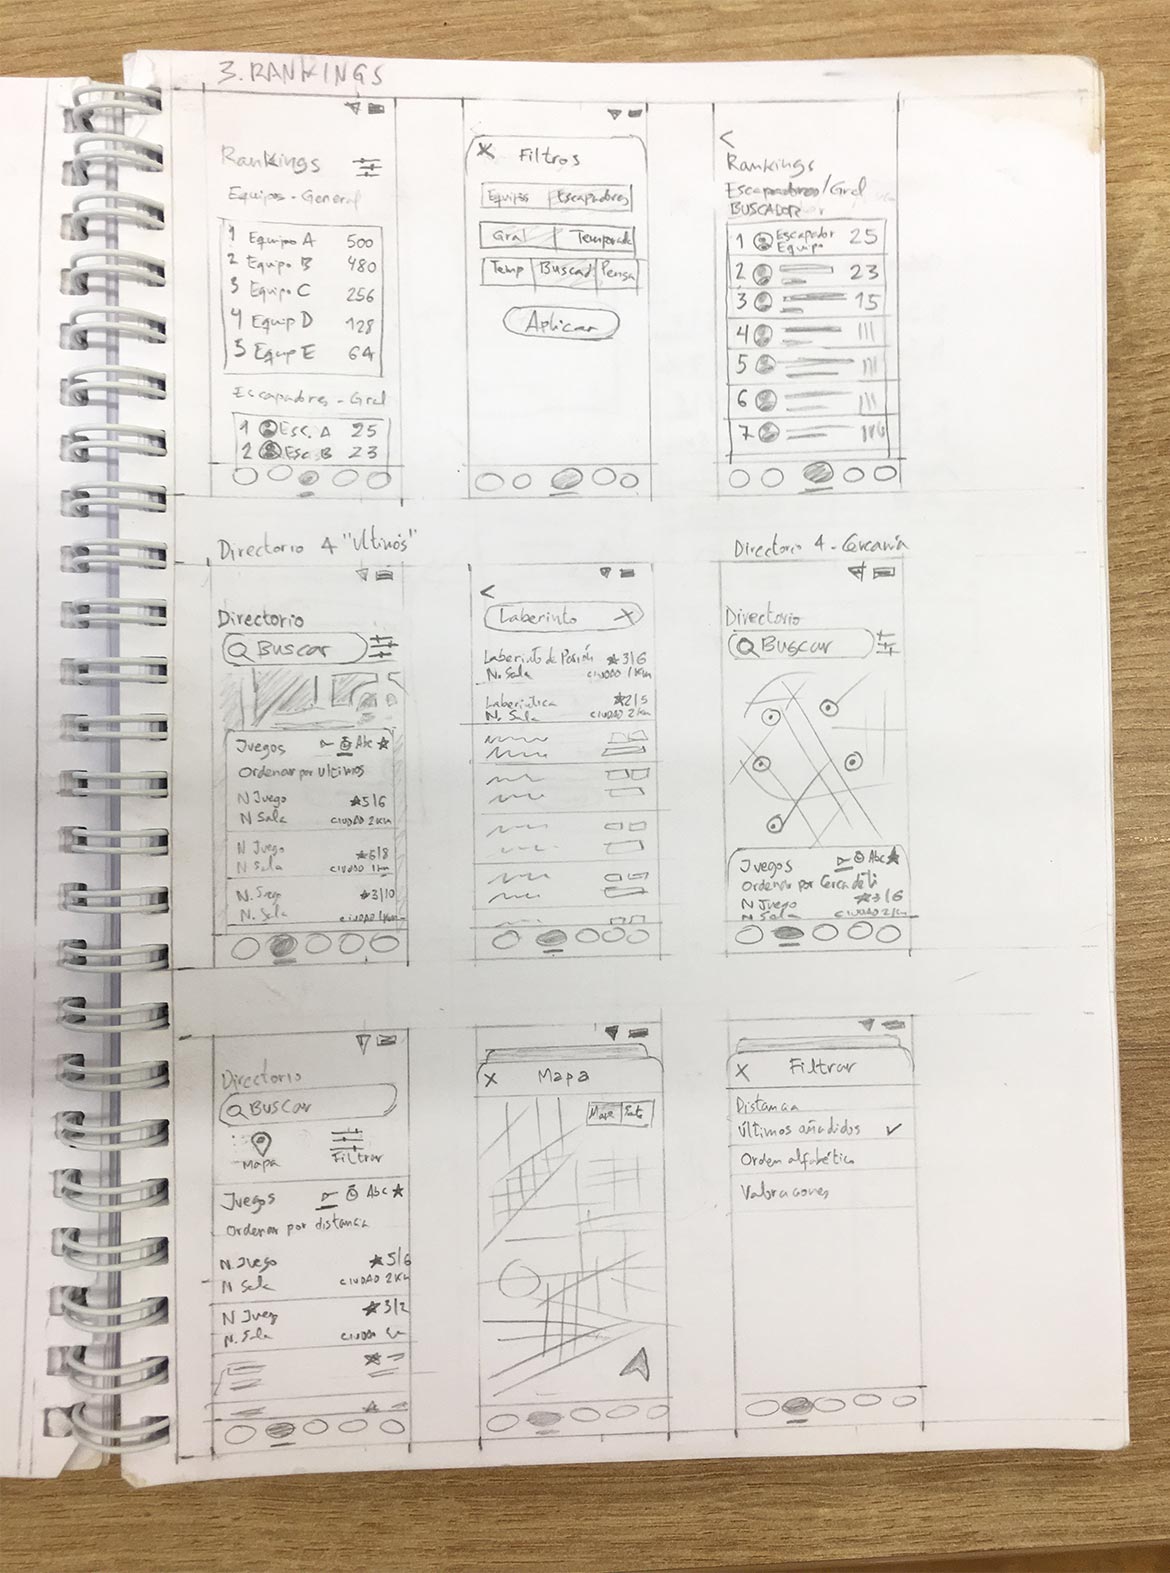 3. RANKINGS
Rankings
Equipos - General
1 Equipo A 500
2 Equipo B 480
3 Equipo C 256
4 Equip D 128
5 Equip E 64
Escapadores - Gral
1 Esc. A 25
2 Esc. B 23
X Filtros
Equipos Escapadores
Gral Temporada
Temp Buscad Pensa
Aplicar
<
Rankings
Escapadores/Gral
BUSCADOR
1 Escapador 25
Equipo
2 23
3 15
4
5
6
7
Directorio 4 "Ultimos"
Directorio
Buscar
Juegos Abc ★
Ordenar por Ultimos
N Juego ★5/6
N Sala CIUDAD 2Km
N Juego ★6/8
N Sala CIUDAD 1Km
N. Juego ★3/10
N. Sala CIUDAD 1Km
<
Laberinto X
Laberinto de Pasión ★3/6
N. Sala CIUDAD 1Km
Laberintica ★2/5
N. Sala CIUDAD 2Km
Directorio 4 - Cercanía
Directorio
Buscar
Juegos Abc ★
Ordenar por Cerca de ti
N Juego ★3/6
N Sala CIUDAD 2Km
Directorio
Buscar
Mapa Filtrar
Juegos Abc ★
Ordenar por distancia
N. Juego ★5/6
N Sala CIUDAD 2Km
N Juego ★3/2
N. Sala CIUDAD
X Mapa
Mapa
X Filtrar
Distancia
Últimos añadidos ✓
Orden alfabético
Valoraciones